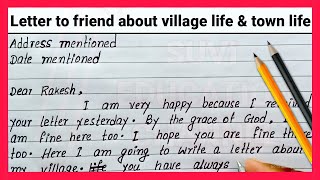 Letter to friend about village life & town life
Address mentioned
Date mentioned
Dear Rakesh,
I am very happy because I
your letter yesterday. By the grace of God,
am fine here too. I hope you are fine
too. Here I am going to write a letter about
my village. life you have always